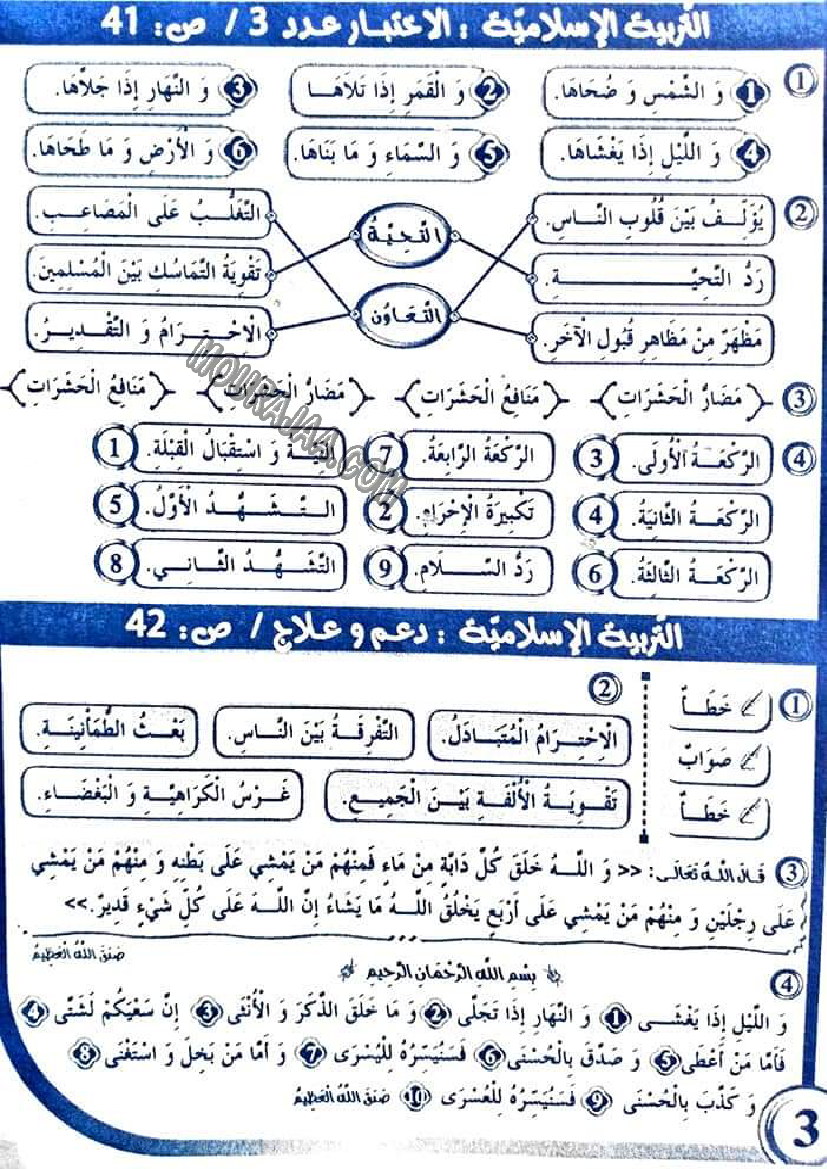 التّربية الإسلاميّة : الاختبار عدد 3 / ص: 41
① 1 وَ الشَّمْسِ وَ ضُحَاهَا. 2 وَ الْقَمَرِ إِذَا تَلَاهَا 3 وَ النَّهَارِ إِذَا جَلاَّهَا.
4 وَ اللَّيْلِ إِذَا يَغْشَاهَا. 5 وَ السَّمَاءِ وَ مَا بَنَاهَا. 6 وَ الْأَرْضِ وَ مَا طَحَاهَا.
② يُؤَلِّفُ بَيْنَ قُلُوبِ النَّاسِ. التَّحِيَّةُ التَّغَلُّبُ عَلَى الْمَصَاعِبِ.
رَدُّ التَّحِيَّةِ. تَقْوِيَةُ التَّمَاسُكِ بَيْنَ الْمُسْلِمِينَ.
مَظْهَرٌ مِنْ مَظَاهِرِ قُبُولِ الْآخَرِ. التَّعَاوُن الْاِحْتِرَامُ وَ التَّقْدِيرُ.
③ مَضَارُّ الْحَشَرَاتِ مَنَافِعُ الْحَشَرَاتِ مَضَارُّ الْحَشَرَاتِ مَنَافِعُ الْحَشَرَاتِ
④ الرَّكْعَةُ الْأُولَى. 3 الرَّكْعَةُ الرَّابِعَةُ. 7 النِّيَّةُ وَ اسْتِقْبَالُ الْقِبْلَةِ. 1
الرَّكْعَةُ الثَّانِيَةُ. 4 تَكْبِيرَةُ الْإِحْرَامِ. 2 التَّشَهُّدُ الْأَوَّلُ. 5
الرَّكْعَةُ الثَّالِثَةُ. 6 رَدُّ السَّلَامِ. 9 التَّشَهُّدُ الثَّانِي. 8
MOURAJAA.COM
التّربية الإسلاميّة : دعم و علاج / ص: 42
① خَطَأٌ
صَوَابٌ
خَطَأٌ
②
الْاِحْتِرَامُ الْمُتَبَادَلُ. التَّفْرِقَةُ بَيْنَ النَّاسِ. بَعْثُ الطُّمَأْنِينَةِ.
تَقْوِيَةُ الْأُلْفَةِ بَيْنَ الْجَمِيعِ. غَرْسُ الْكَرَاهِيَّةِ وَ الْبَغْضَاءِ.
③ قَالَ اللَّهُ تَعَالَى: << وَ اللَّهُ خَلَقَ كُلَّ دَابَّةٍ مِنْ مَاءٍ فَمِنْهُمْ مَنْ يَمْشِي عَلَى بَطْنِهِ وَ مِنْهُمْ مَنْ يَمْشِي
عَلَى رِجْلَيْنِ وَ مِنْهُمْ مَنْ يَمْشِي عَلَى أَرْبَعٍ يَخْلُقُ اللَّهُ مَا يَشَاءُ إِنَّ اللَّهَ عَلَى كُلِّ شَيْءٍ قَدِيرٌ.>>
صَدَقَ اللَّهُ الْعَظِيمُ
④ بِسْمِ اللَّهِ الرَّحْمَانِ الرَّحِيمِ
وَ اللَّيْلِ إِذَا يَغْشَى 1 وَ النَّهَارِ إِذَا تَجَلَّى 2 وَ مَا خَلَقَ الذَّكَرَ وَ الْأُنْثَى 3 إِنَّ سَعْيَكُمْ لَشَتَّى 4
فَأَمَّا مَنْ أَعْطَى 5 وَ صَدَّقَ بِالْحُسْنَى 6 فَسَنُيَسِّرُهُ لِلْيُسْرَى 7 وَ أَمَّا مَنْ بَخِلَ وَ اسْتَغْنَى 8
وَ كَذَّبَ بِالْحُسْنَى 9 فَسَنُيَسِّرُهُ لِلْعُسْرَى 10 صَدَقَ اللَّهُ الْعَظِيمُ
3